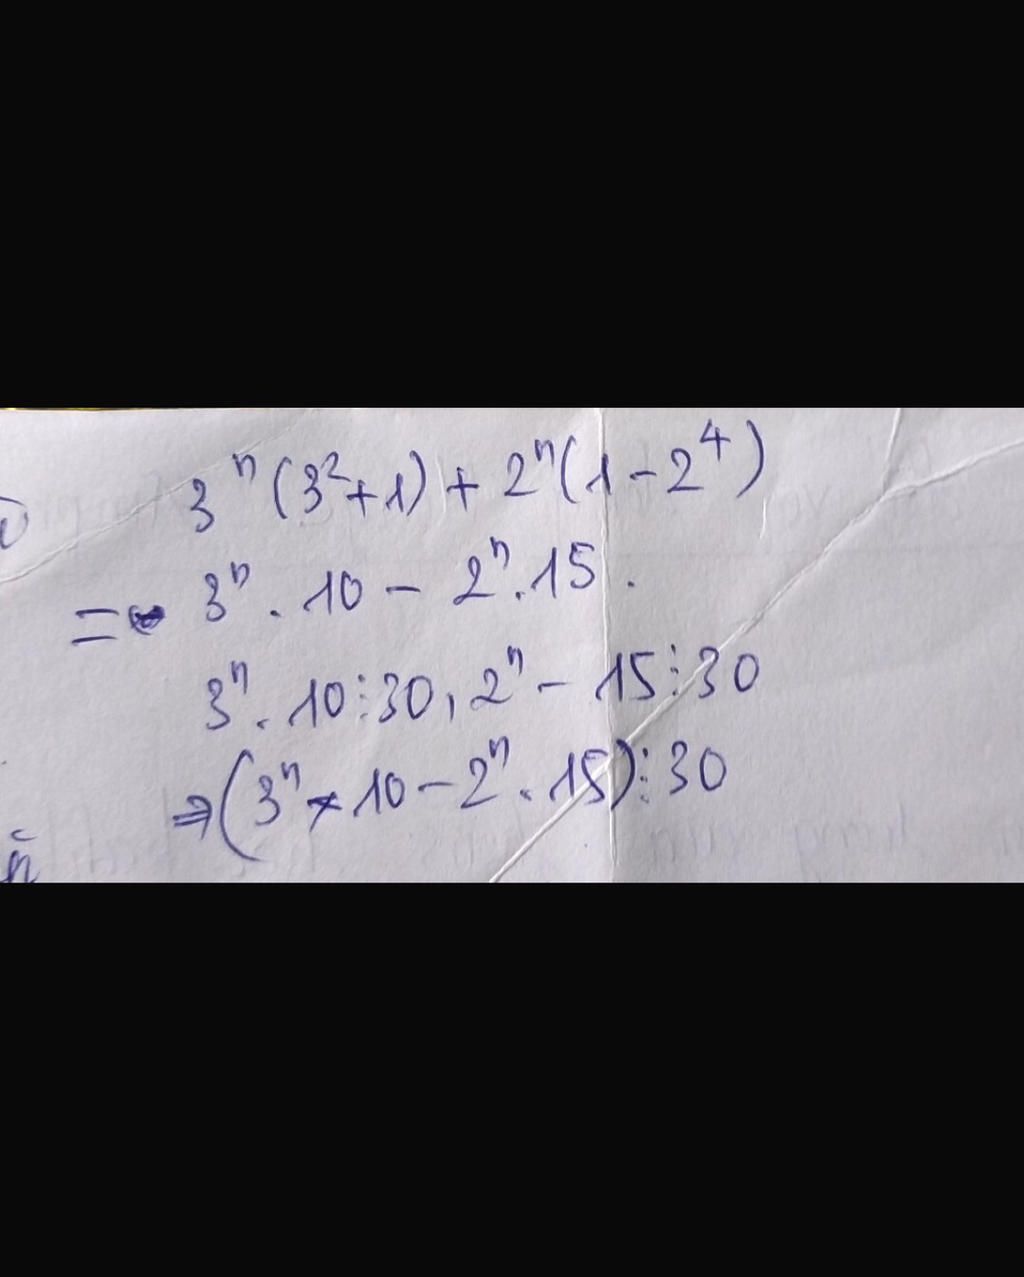 3ⁿ (3² + 1) + 2ⁿ (1 - 2⁴)
= 3ⁿ . 10 - 2ⁿ . 15 .
3ⁿ . 10 ⋮ 30 , 2ⁿ - 15 ⋮ 30
⇒ (3ⁿ × 10 - 2ⁿ . 15) ⋮ 30